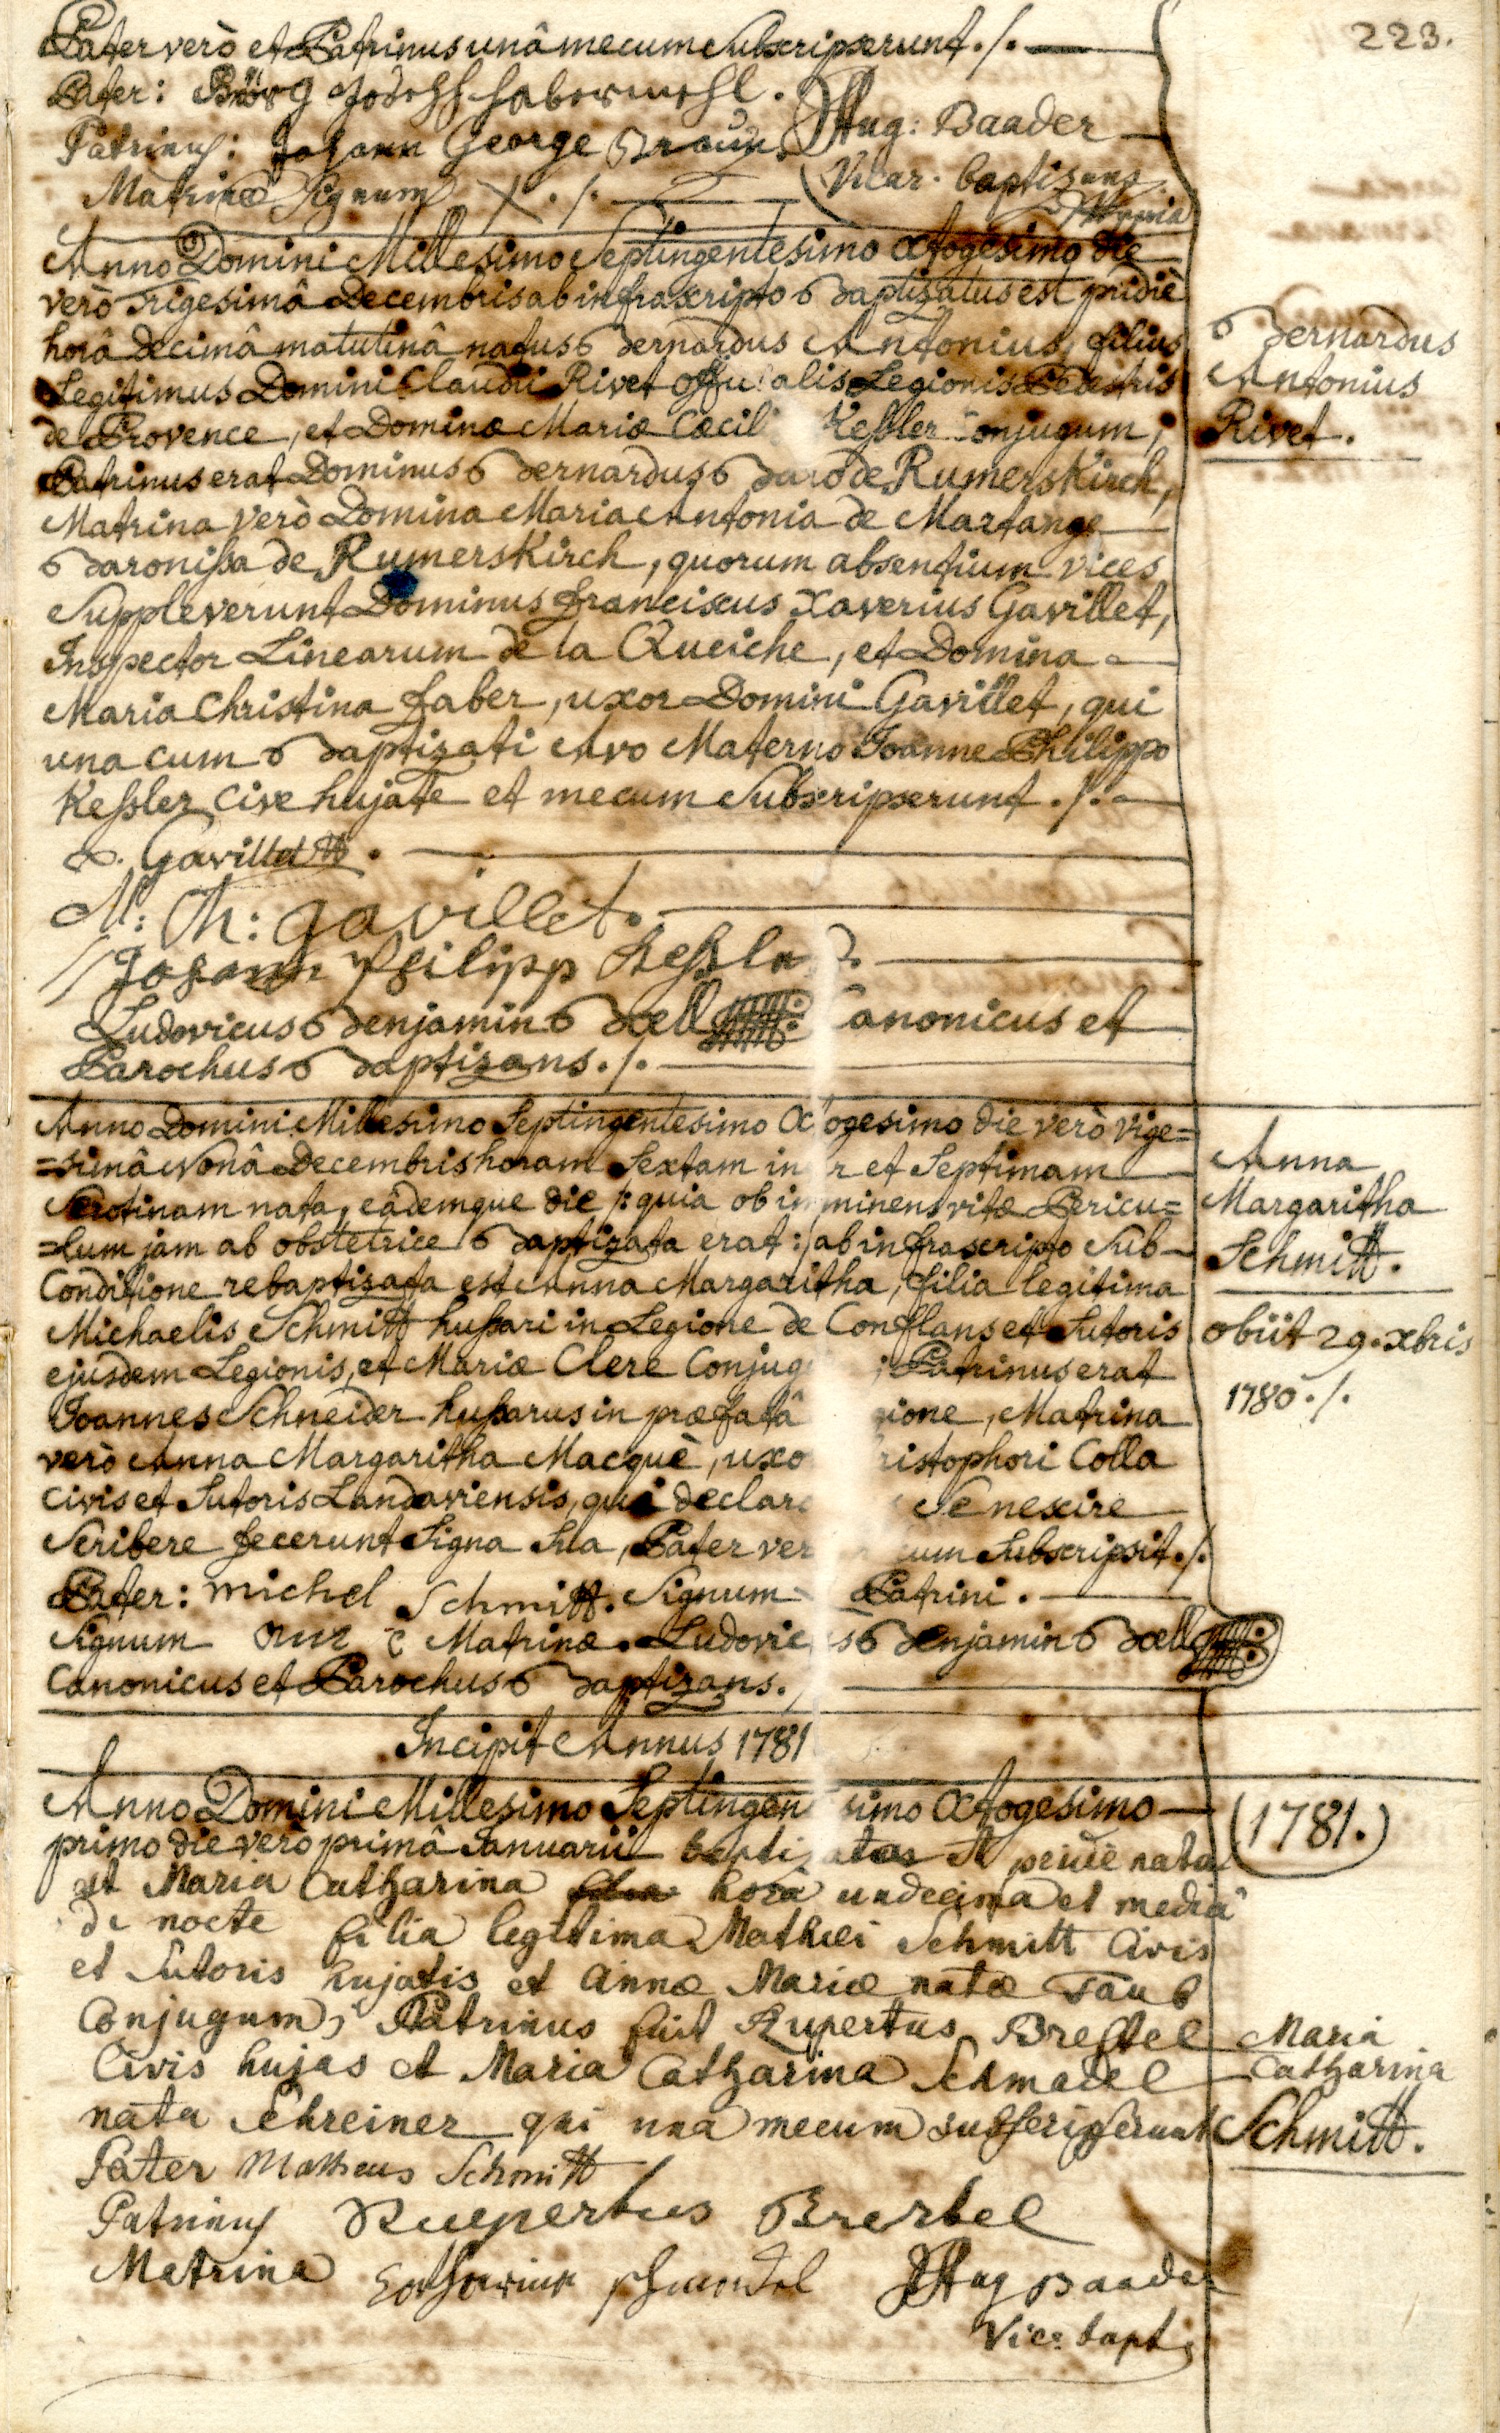 223.
Pater verò et Patrinus unâ mecum Subscripserunt ./.
Pater: Görg Joseph Habermehl.
Patrinus: Johann George Braun. Aug: Baader
Matrinæ Signum X ./. Vicar. baptizans
Anno Domini Millesimo Septingentesimo octogesimo die
verò trigesimâ Decembris ab infrascripto Baptizatus est pridiè
horâ decimâ matutinâ natus Bernardus Antonius, filius
Legitimus Domini Claudii Rivet offi alis Legionis Pedestris
de Provence, et Dominæ Mariæ Cæcil Keßler Conjugum;
Patrinus erat Dominus Bernardus Baro de Rumerskirch,
Matrina verò Domina Maria Antonia de Martange
Baronißa de Rumerskirch, quorum absentium vices
Suppleverunt Dominus franciscus Xaverius Gavillet,
Inspector Linearum de la Queiche, et Domina
Maria Christina faber, uxor Domini Gavillet, qui
una cum Baptizati Avo Materno Joanne Philippo
Keßler Cive hujate et mecum Subscripserunt ./.
Gavillet.
M: Ch: gavillet.
Johann Philipp Keßler.
Ludovicus Benjamin Boell anonicus et
Parochus Baptizans ./.
Bernardus
Antonius
Rivet.
Anno Domini Millesimo Septingentesimo Octogesimo die verò vige=
=simâ Nonâ Decembris horam Sextam in r et Septimam
Serotinam nata, eâdemque die /: quia ob imminens vitæ Pericu=
=lum jam ab obstetrice Baptizata erat :/ ab infrascripto Sub
Conditione rebaptizata est Anna Margaritha, filia legitima
Michaelis Schmitt hußari in Legione de Conflans et Sutoris
ejusdem Legionis, et Mariæ Clere Conjug ; Patrinus erat
Joannes Schneider hußarus in præfatâ gione, Matrina
verò Anna Margaritha Macquè, uxo ristophori Colla
Civis et Sutoris Landaviensis, qui declara Se nescire
Scribere fecerunt Signa Sua, Pater ver cum Subscripsit ./.
Pater: michel Schmitt. Signum Patrini.
Signum Matrinæ. Ludovic s Benjamin Boell
Canonicus et Parochus Baptizans.
Anna
Margaritha
Schmitt.
obiit 29. xbris
1780 ./.
Incipit Annus 1781
Anno Domini Millesimo Septingen simo Octogesimo
primo die verò primâ Januarii bapti ata et pridiè nata
est Maria Catharina horâ undecima et mediâ
de nocte filia legitima Mathæi Schmitt Civis
et Sutoris hujatis et Annæ Mariæ natæ Taub
Conjugum; Patrinus fuit Rupertus Brestel
Civis hujas et Maria Catharina Schmadel
nata Schreiner qui una mecum subscripserunt
Pater Matheus Schmitt
Patrinus Ruepertus Brestel
Matrina Catharina Schmadel Aug Baader
Vic: bapt
(1781.)
Maria
Catharina
Schmitt.